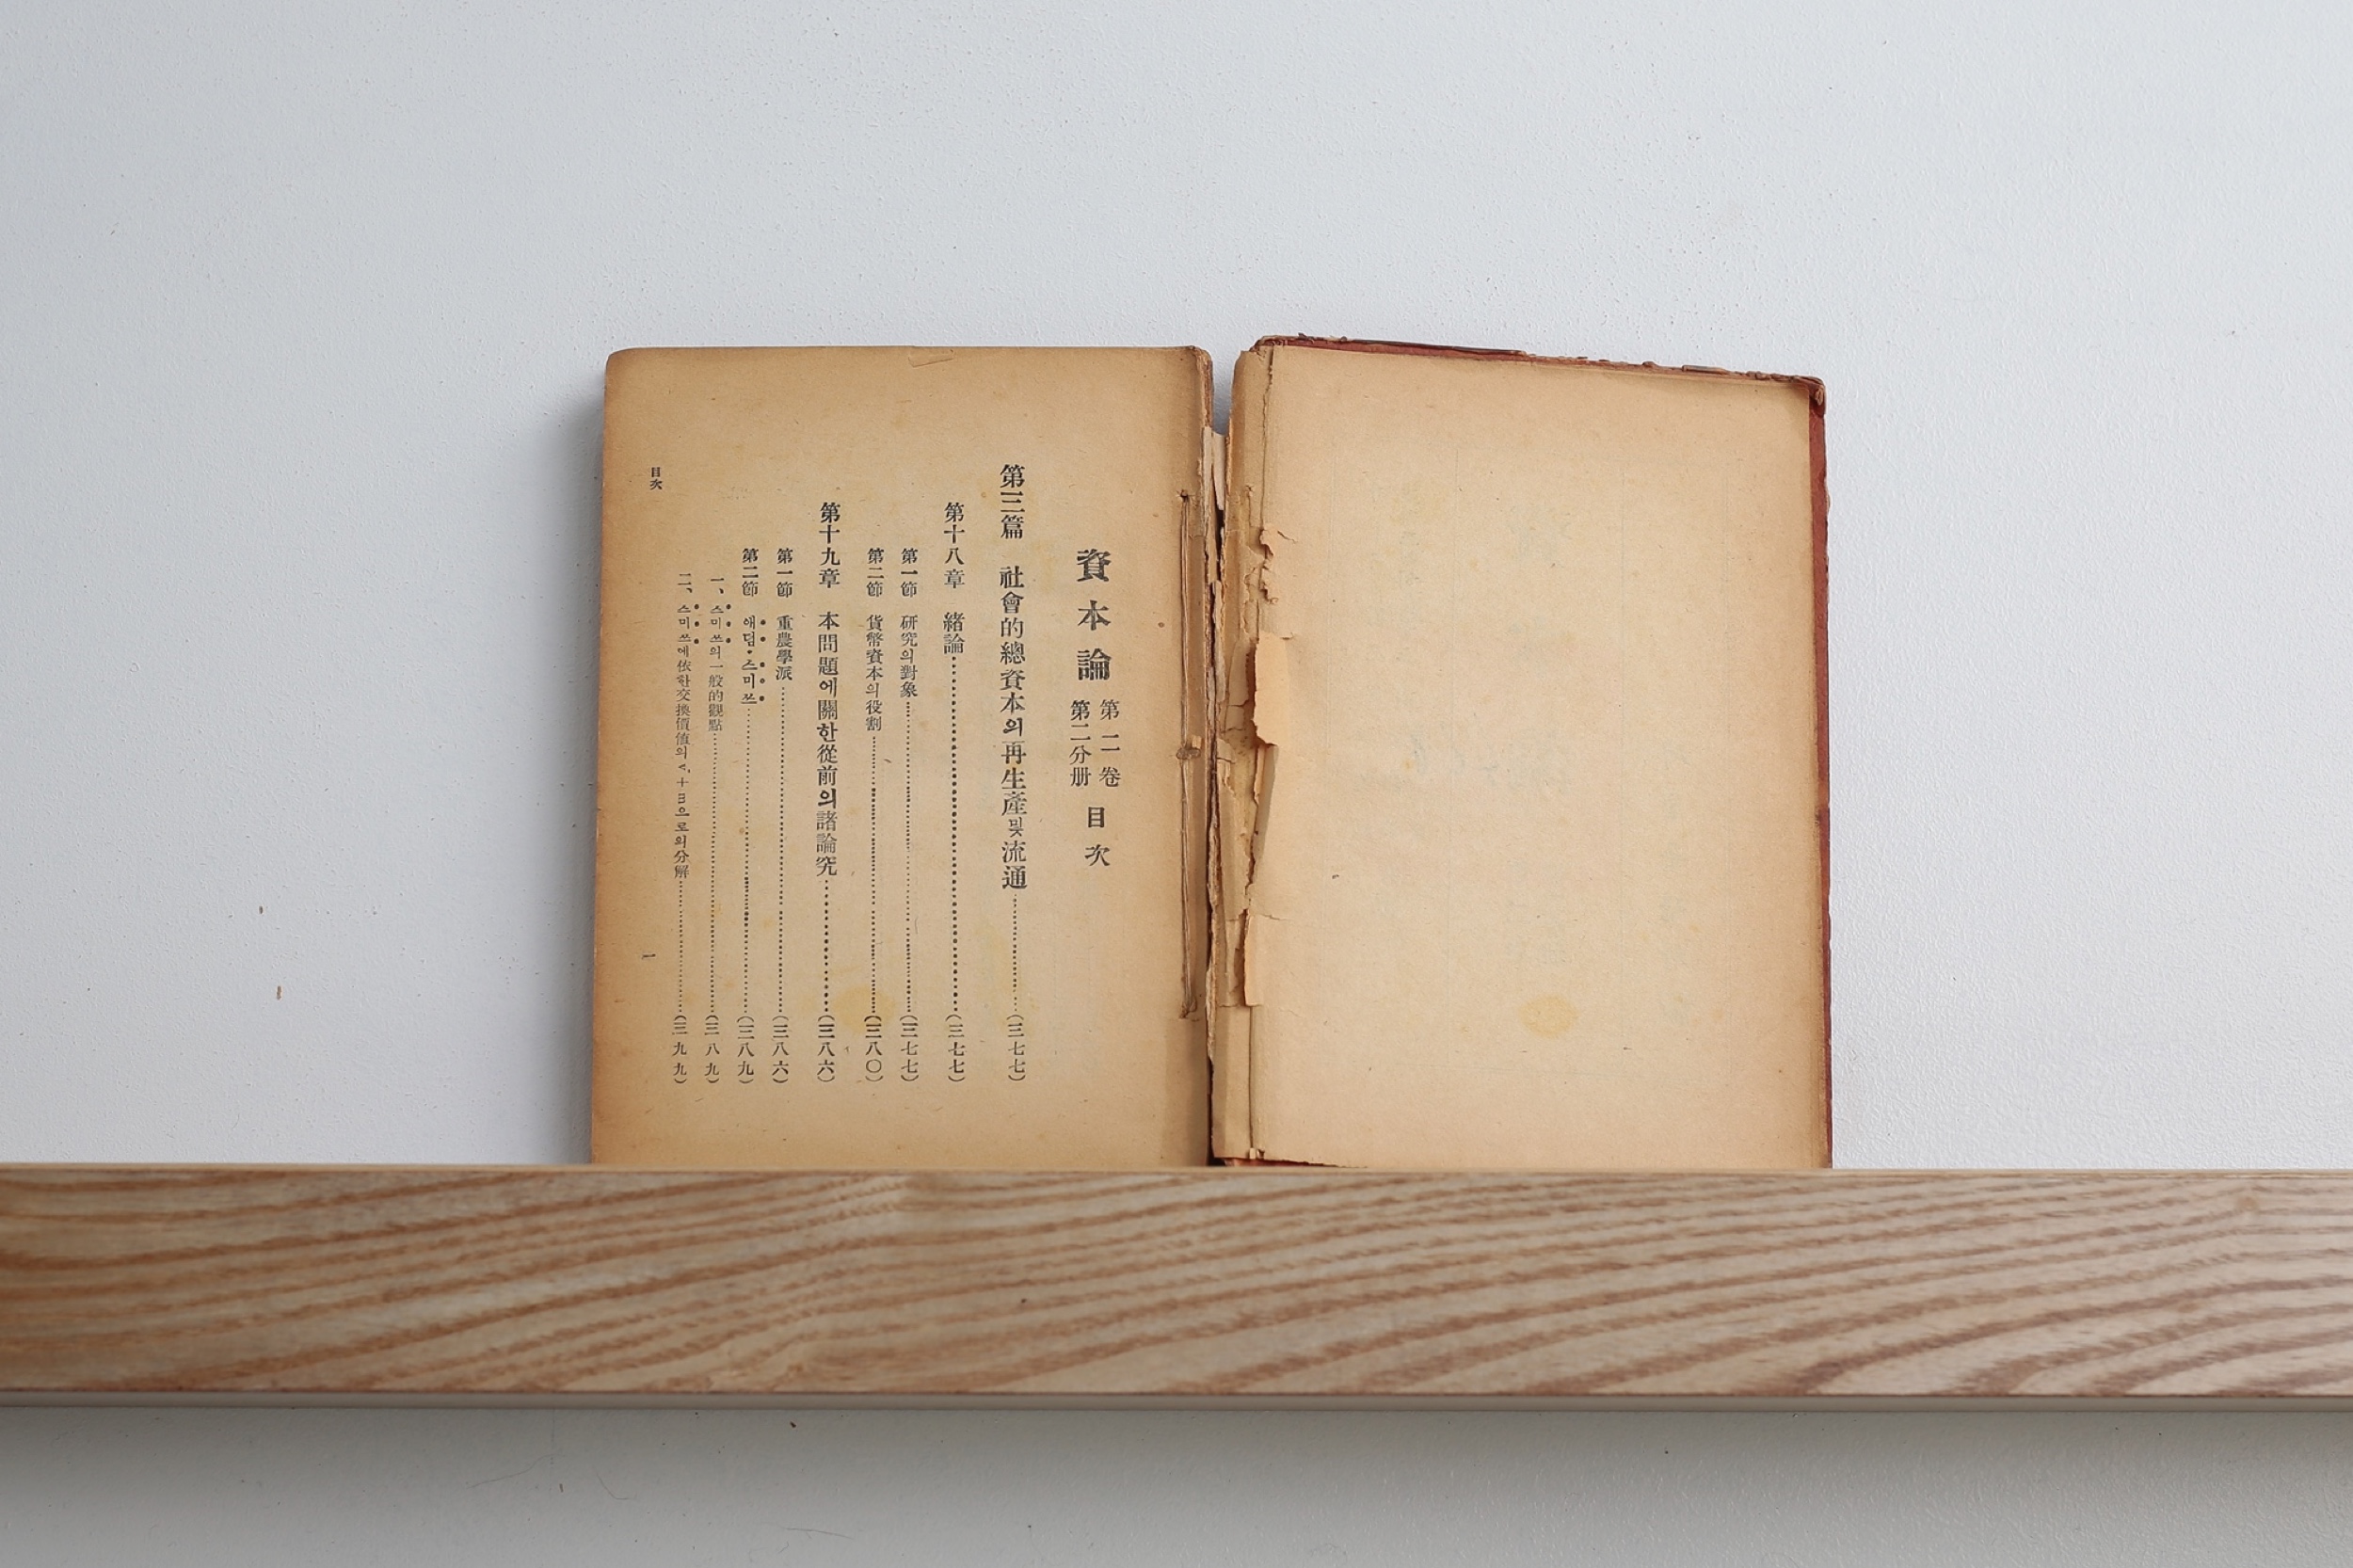 資本論 第二卷 第二分册 目次
第三篇 社會的總資本의再生產및流通（三七七）
第十八章 緖論（三七七）
第一節 硏究의對象（三七七）
第二節 貨幣資本의役割（三八〇）
第十九章 本問題에關한從前의諸論究（三八六）
第一節 重農學派（三八六）
第二節 애덤·스미쓰（三八九）
一、스미쓰의一般的觀點（三八九）
二、스미쓰에依한交換價値의v+m으로의分解（三九九）
目次
1